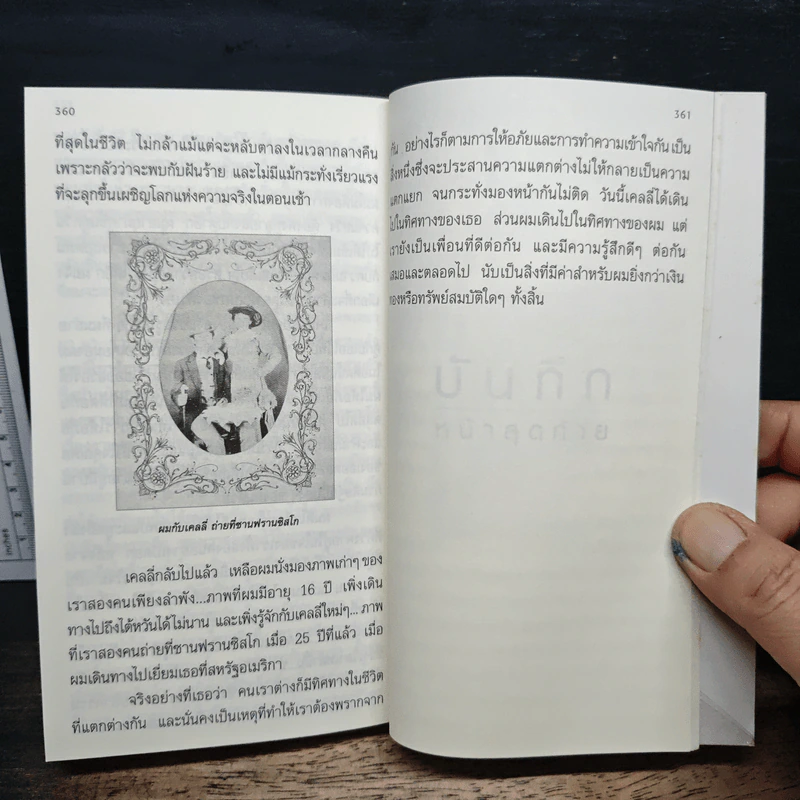 360
ที่สุดในชีวิต ไม่กล้าแม้แต่จะหลับตาลงในเวลากลางคืน
เพราะกลัวว่าจะพบกับฝันร้าย และไม่มีแม้กระทั่งเรี่ยวแรง
ที่จะลุกขึ้นเผชิญโลกแห่งความจริงในตอนเช้า
ผมกับเคลลี่ ถ่ายที่ซานฟรานซิสโก
เคลลี่กลับไปแล้ว เหลือผมนั่งมองภาพเก่าๆ ของ
เราสองคนเพียงลำพัง...ภาพที่ผมมีอายุ 16 ปี เพิ่งเดิน
ทางไปถึงไต้หวันได้ไม่นาน และเพิ่งรู้จักกับเคลลี่ใหม่ๆ... ภาพ
ที่เราสองคนถ่ายที่ซานฟรานซิสโก เมื่อ 25 ปีที่แล้ว เมื่อ
ผมเดินทางไปเยี่ยมเธอที่สหรัฐอเมริกา
จริงอย่างที่เธอว่า คนเราต่างก็มีทิศทางในชีวิต
ที่แตกต่างกัน และนั่นคงเป็นเหตุที่ทำให้เราต้องพรากจาก
361
กัน อย่างไรก็ตามการให้อภัยและการทำความเข้าใจกัน เป็น
สิ่งหนึ่งซึ่งจะประสานความแตกต่างไม่ให้กลายเป็นความ
แตกแยก จนกระทั่งมองหน้ากันไม่ติด วันนี้เคลลี่ได้เดิน
ไปในทิศทางของเธอ ส่วนผมเดินไปในทิศทางของผม แต่
เรายังเป็นเพื่อนที่ดีต่อกัน และมีความรู้สึกดีๆ ต่อกัน
เสมอและตลอดไป นับเป็นสิ่งที่มีค่าสำหรับผมยิ่งกว่าเงิน
ทองหรือทรัพย์สมบัติใดๆ ทั้งสิ้น
inches